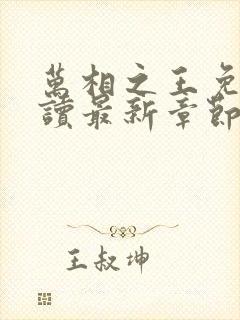 萬相之王免
讀最新章節
王叔坤